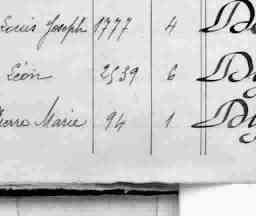 Louis Joseph 1777 4
Léon 2539 6
Pierre Marie 94 1